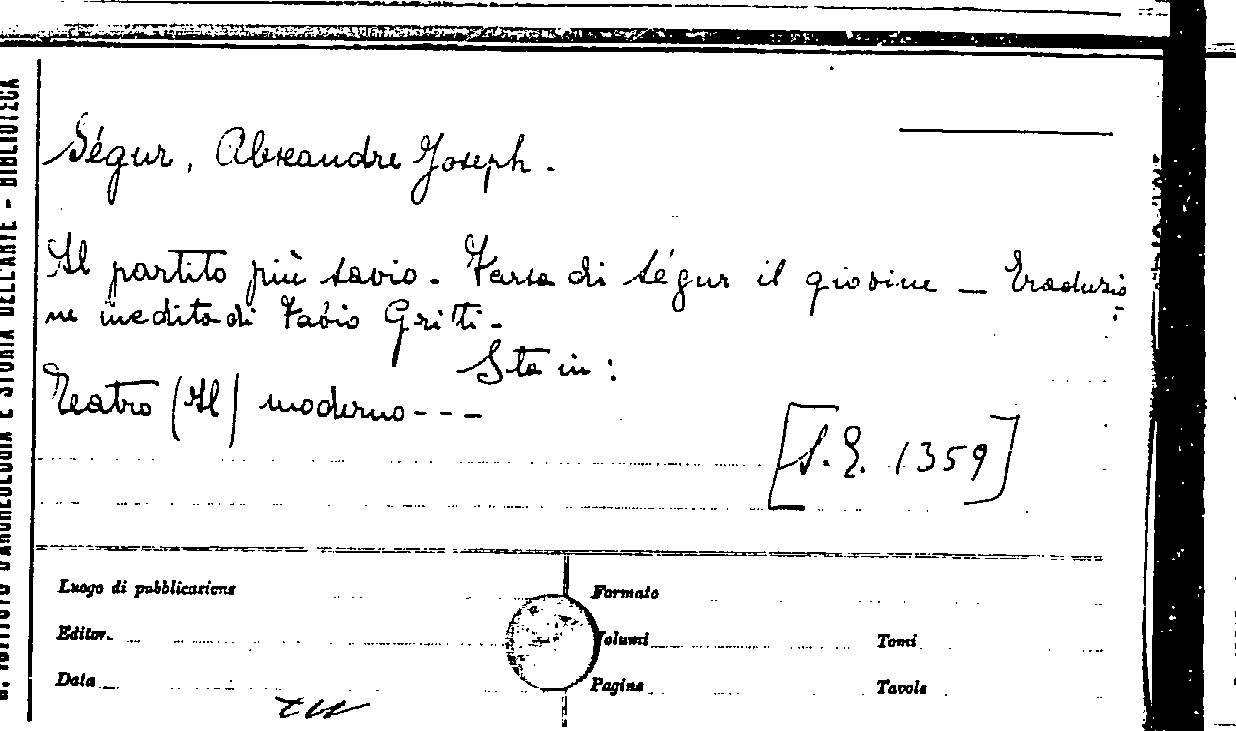 Ségur, Alexandre Joseph.
Il partito più savio. Farsa di Ségur il giovine — Traduzio
ne inedita di Fabio Gritti.
Sta in:
Teatro (Il) moderno---
[S.E. 1359]
Luogo di pubblicazione
Formato
Editore
Volumi
Tomi
Data
Pagine
Tavole
R. ISTITUTO D'ARCHEOLOGIA E STORIA DELL'ARTE - BIBLIOTECA